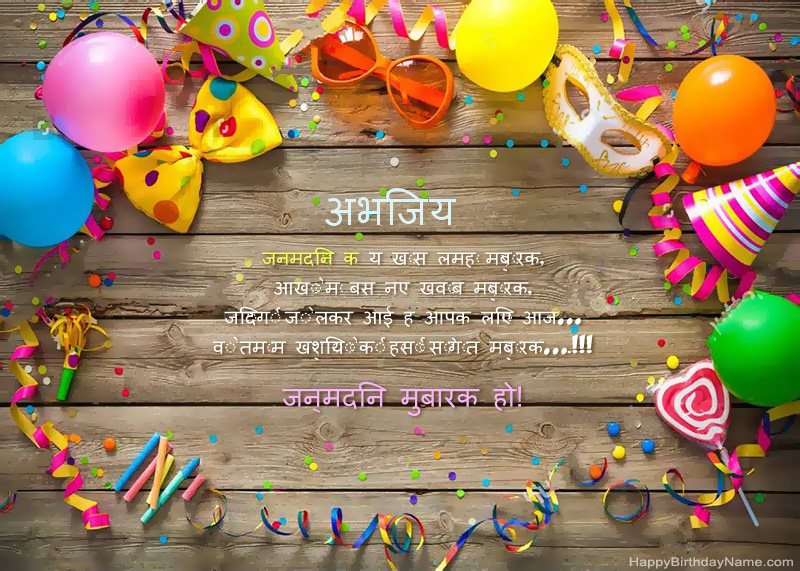 अभिजय
जन्मदिन के ये ख़ास लम्हें मुबारक,
आँखों में बसे नए ख्वाब मुबारक,
जिंदगी जो लेकर आई है आपके लिए आज...
वो तमाम खुशियों की हंसीं सौगात मुबारक...!!!
जन्मदिन मुबारक हो!
HappyBirthdayName.com